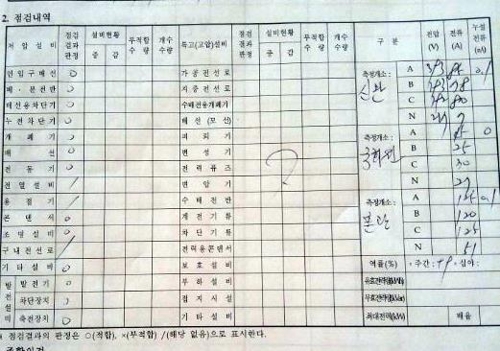 2. 점검내역
저압설비 점검결과판정 설비현황 증 감 부적합수량 개수수량 특고(고압)설비 점검결과판정 설비현황 증 감 부적합수량 개수수량 구분 전압(V) 전류(A) 누설전류(mA)
인입구배선 ○ 가공전선로 측정개소: A
배·분전반 ○ 지중전선로 신관 B 78
배선용차단기 ○ 수배전용개폐기 C 80
누전차단기 ○ 배선(모선) N 7
개폐기 ○ 피뢰기 측정개소: A 0
배선 ○ 변성기 B 25
전동기 ○ 전력퓨즈 C 30
전열설비 / 변압기 N 27
용접기 / 수배전반 측정개소: A
콘덴서 ○ 계전기류 본관 B 120
조명설비 ○ 차단기류 C 125
구내전선로 / 전력용콘덴서 N 51
기타설비 ○ 보호설비 역률(%) ·주간: ·심야:
발전설비 발전기 ○ 부하설비
차단장치 ○ 접지설비
축전장치 ○ 기타설비 최대전력(kW) 배율
점검결과의 판정은 ○(적합), ×(부적합) /(해당 없음)으로 표시한다.